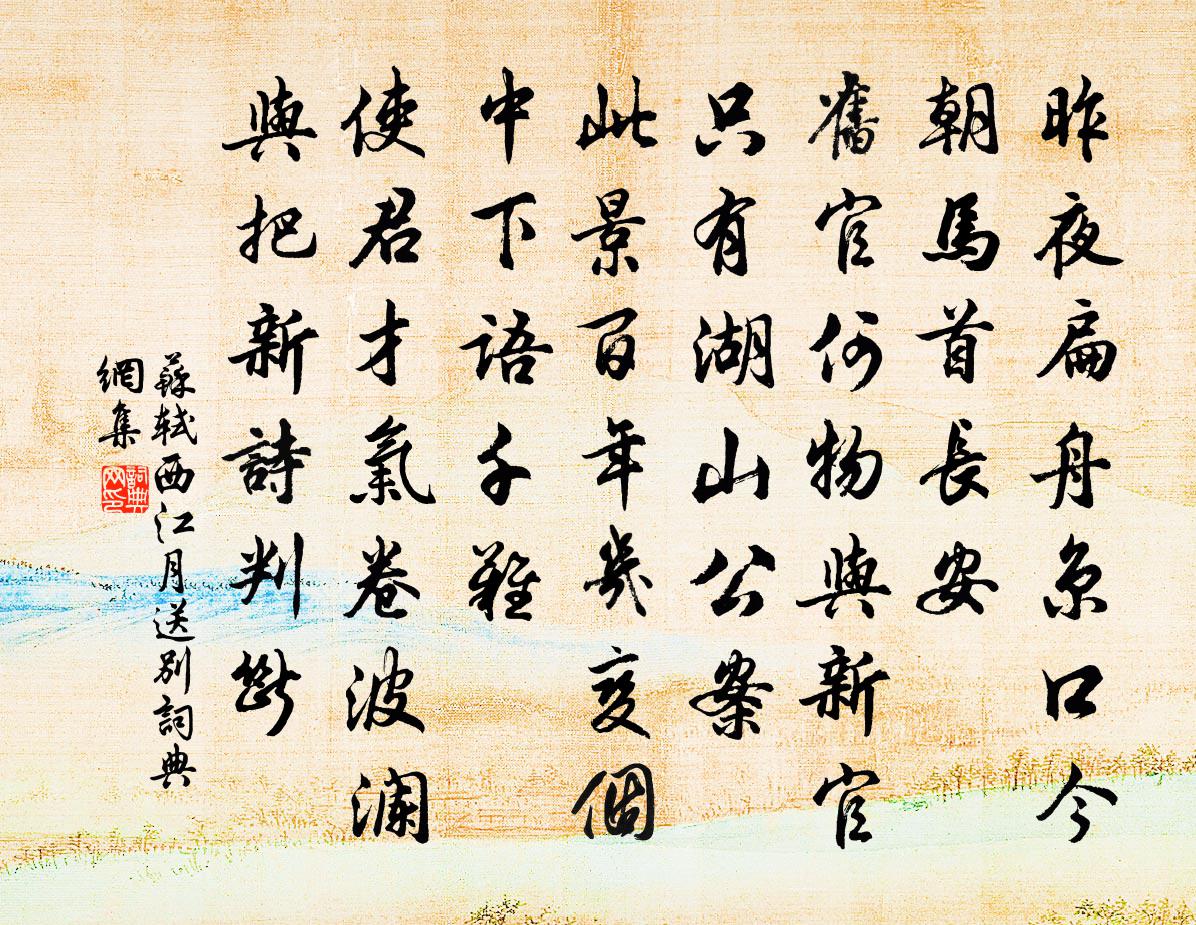 昨夜扁舟京口今
朝馬首長安
舊官何物與新官
只有湖山公案
此景百年幾變個
中下語千難
使君才氣卷波瀾
與把新詩判斷
蘇軾西江月送別詞典
網集
詞典
网印